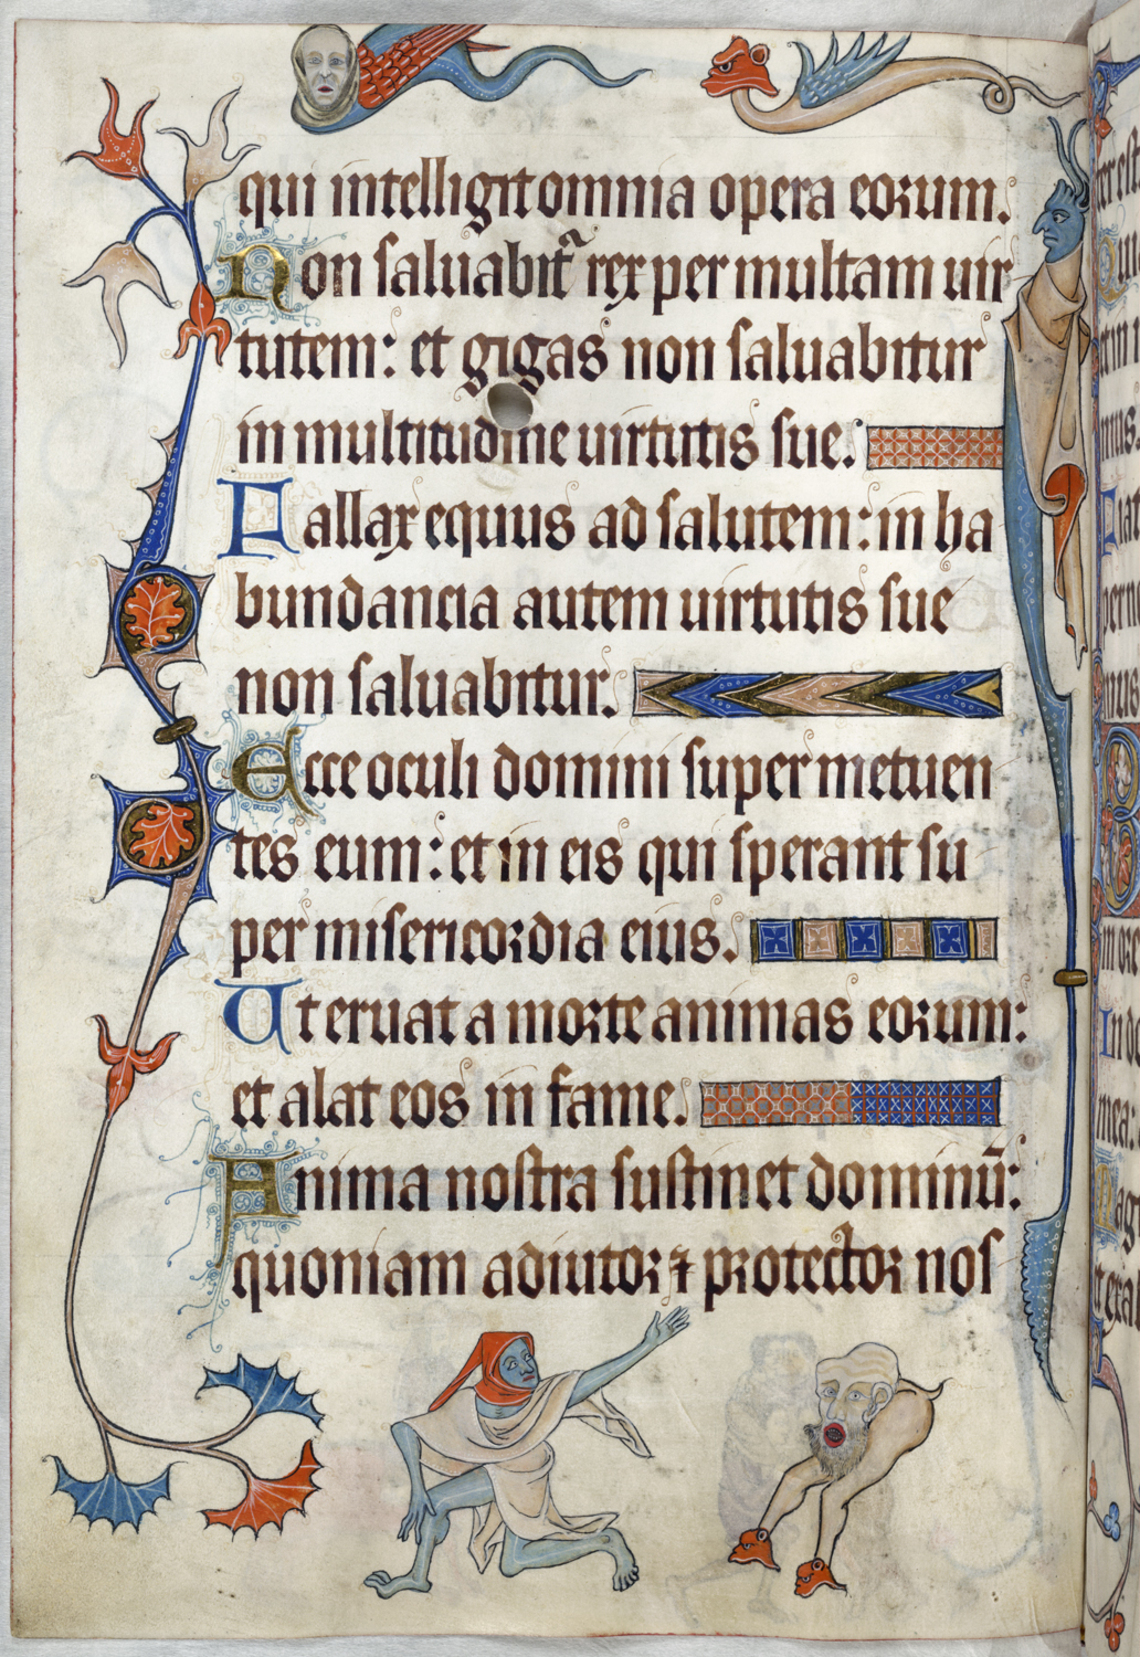 qui intelligit omnia opera eorum.
Non saluabit͛ rex per multam uir
tutem: et gigas non saluabitur
in multitudine uirtutis sue.
Fallax equus ad salutem: in ha
bundancia autem uirtutis sue
non saluabitur.
Ecce oculi domini super metuen
tes eum: et in eis qui sperant su
per misericordia eius.
Ut eruat a morte animas eorum:
et alat eos in fame.
Anima nostra sustinet dominū:
quoniam adiutor ⁊ protector nos